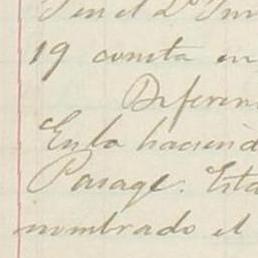 en el
19 consta en
Diferen
En la haciend
Parage. Esta
nombrado el